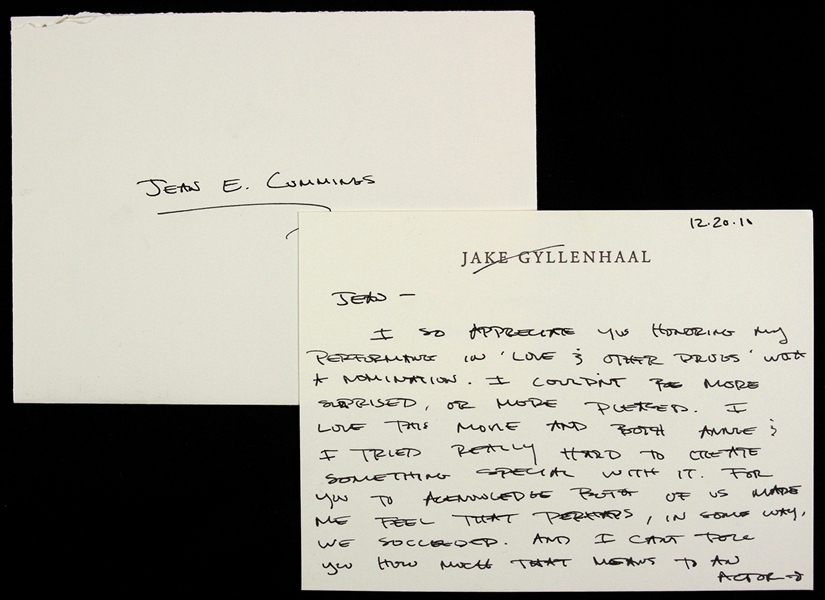 JEAN E. CUMMINGS
12.20.10
JAKE GYLLENHAAL
JEAN —
I SO APPRECIATE YOU HONORING MY
PERFORMANCE IN 'LOVE & OTHER DRUGS' WITH
A NOMINATION. I COULDN'T BE MORE
SURPRISED, OR MORE PLEASED. I
LOVE THIS MOVIE AND BOTH ANNIE &
I TRIED REALLY HARD TO CREATE
SOMETHING SPECIAL WITH IT. FOR
YOU TO ACKNOWLEDGE BOTH OF US MADE
ME FEEL THAT PERHAPS, IN SOME WAY,
WE SUCCEEDED. AND I CAN'T TELL
YOU HOW MUCH THAT MEANS TO AN
ACTOR →